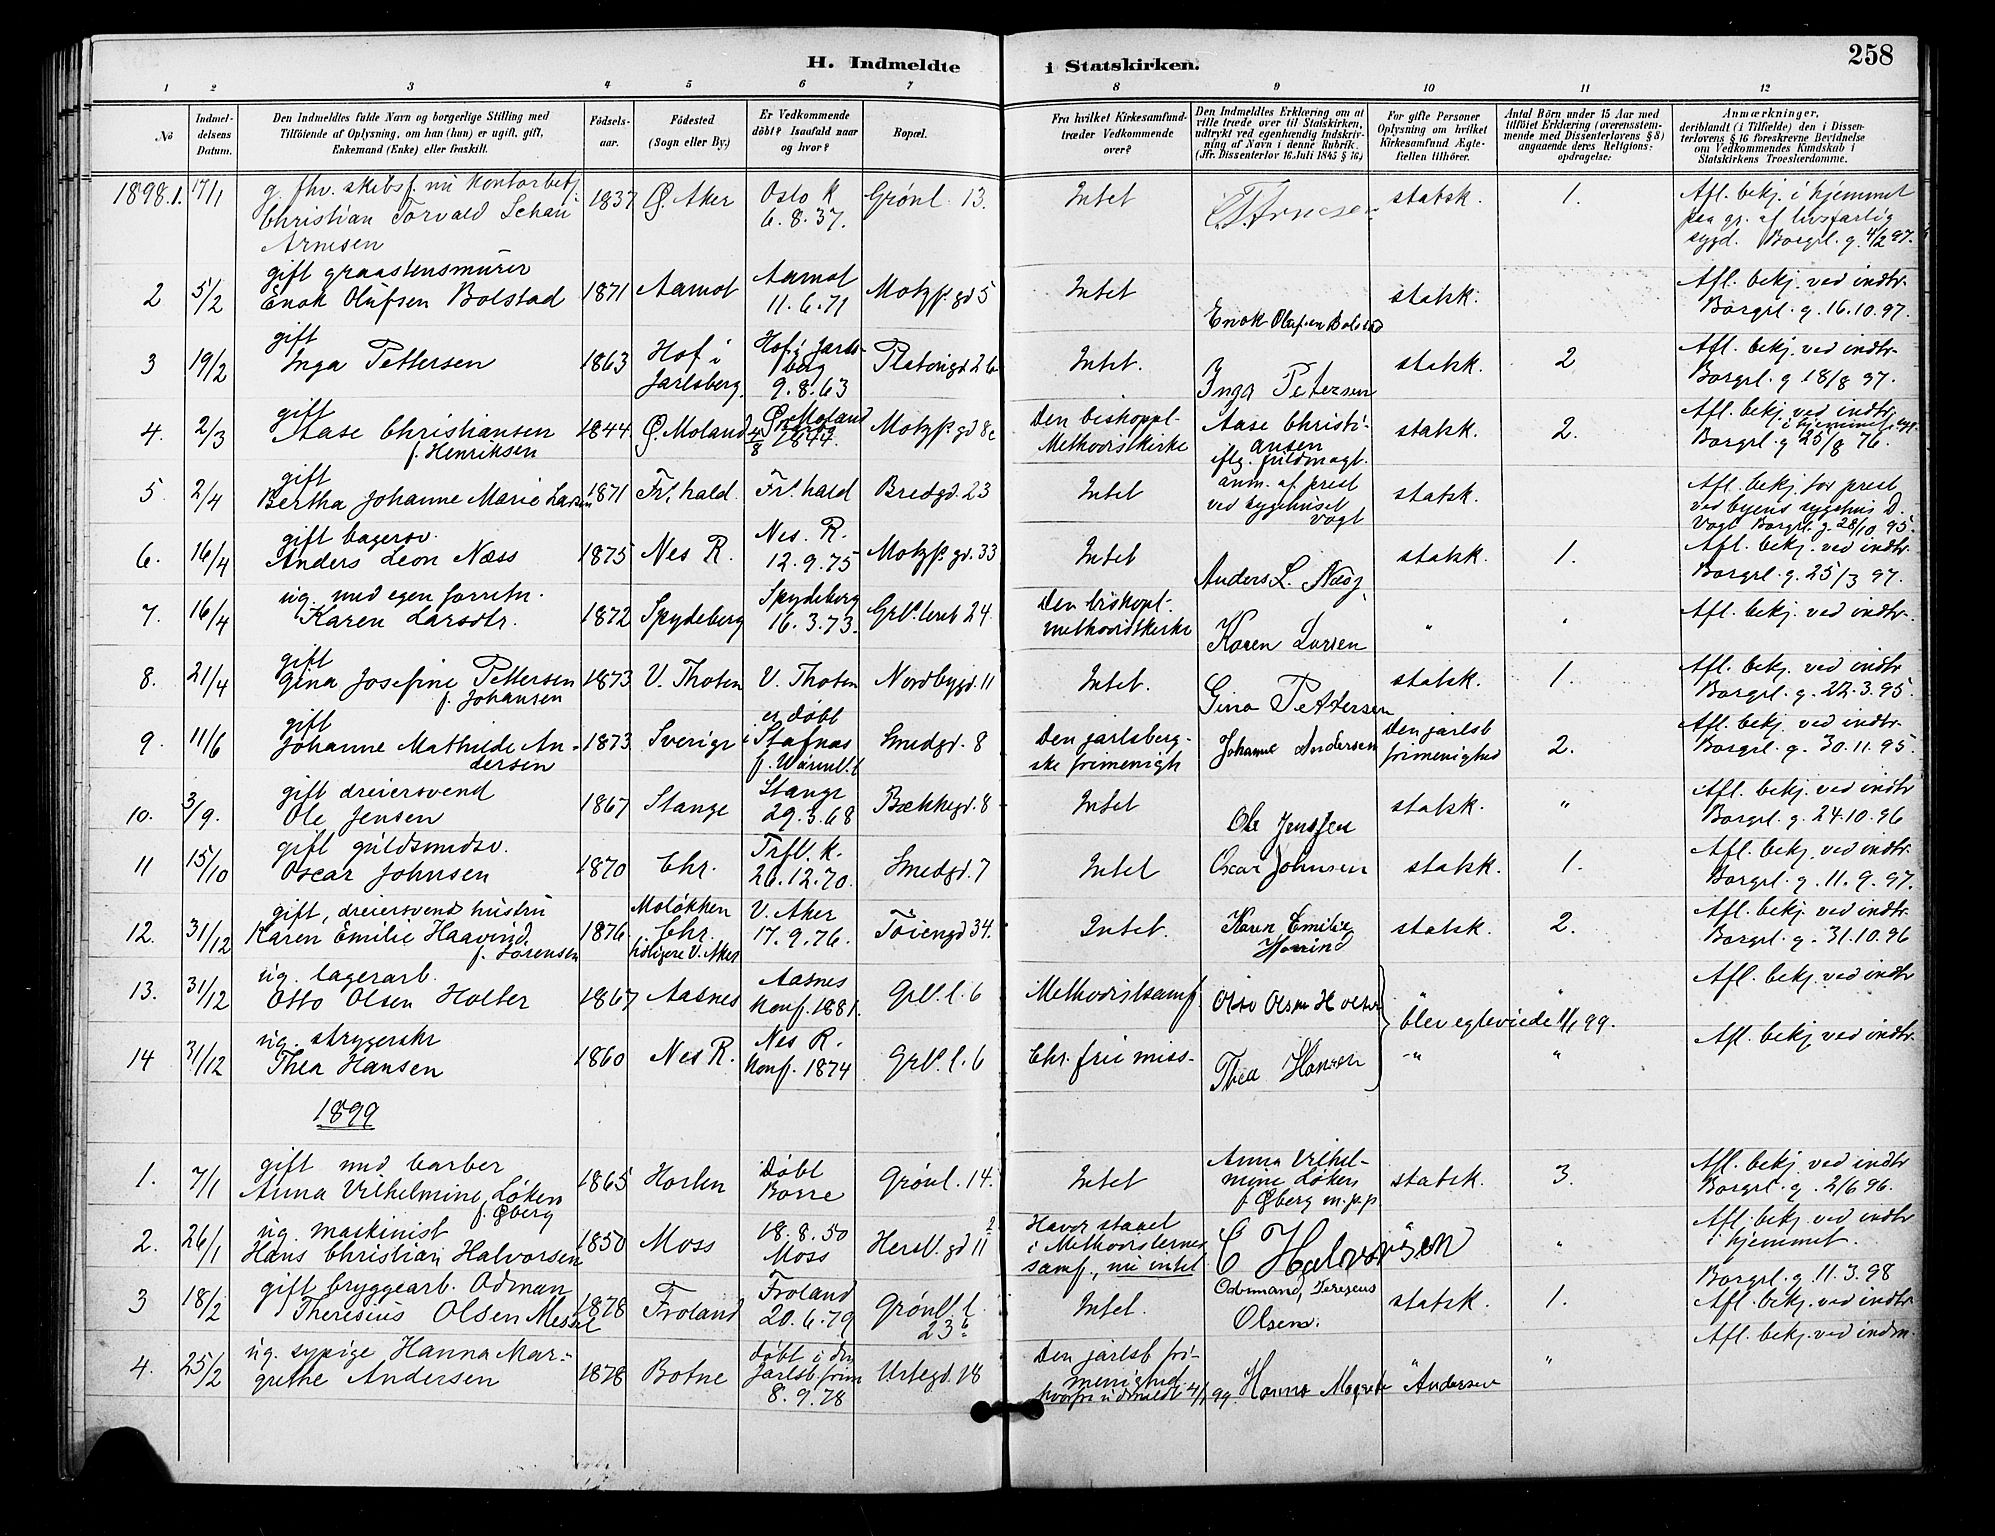 258
H. Indmeldte i Statskirken.
1 2 3 4 5 6 7 8 9 10 11 12
No
Indmel-
delsens
Datum.
Den Indmeldtes fulde Navn og borgerlige Stilling med
Tilføiende af Oplysning, om han (hun) er ugift, gift,
Enkemand (Enke) eller fraskilt.
Fødsels-
aar.
Fødested
(Sogn eller By.)
Er Vedkommende
døbt? Isaafald naar
og hvor?
Bopæl.
Fra hvilket Kirkesamfund
træder Vedkommende
over?
Den Indmeldtes Erklæring om at
ville træde over til Statskirken,
udtrykt ved egenhændig Indskriv-
ning af Navn i denne Rubrik.
(Jfr. Dissenterlov 16 Juli 1845 § 16.)
For gifte Personer
Oplysning om hvilket
Kirkesamfund Ægte-
fællen tilhører.
Antal Børn under 15 Aar med
tilføiet Erklæring (overensstem-
mende med Dissenterlovens § 8)
angaaende deres Religions-
opdragelse:
Anmærkninger,
deriblandt (i Tilfælde) den i Dissen-
terlovens § 16 foreskrevne Bevidnelse
om Vedkommendes Kundskab i
Statskirkens Troeslærdomme.
1898. 1. 17/1 g. fhv. skibsf. nu kontorbetj.
Christian Torvald Schau
Arnesen
1837 Ø. Aker Oslo K
6.8.37. Grønl. 13. Intet C. T. Arnesen statsk. 1. Afl. bekj. i hjemmet
paa gr. af livsfarlig
sygd. Borgerl. g. 4/2 97.
2 5/2 gift graastensmurer
Enok Olufsen Bolstad 1871 Aamot Aamot
11.6.71 Motzf. gd 5 Intet Enok Olufsen Bolstad statsk. Afl. bekj. ved indtr.
Borgrl. g. 16.10.97.
3 19/2 gift
Inga Pettersen 1863 Hof i
Jarlsberg. Hof i Jarls-
berg
9.8.63 Platougd. 26 Intet. Inga Petersen statsk. 2 Afl. bekj. ved indtr.
Borgrl. g 18/8 97.
4. 2/3 gift
Aase Christiansen
f. Henriksen 1844 Ø. Moland Ø. Moland
4/8 1844 Motzf. gd 8c Den biskoppl.
Methodistkirke Aase Christi-
ansen
iflg. fuldmagt. statsk. 2. Afl. bekj. ved indtr.
i hjemmet, syg.
Borgrl. g 25/8 76.
5. 2/4 gift
Bertha Johanne Marie Larsen 1871 Fr. hald. Fr. hald Bredgd. 23 Intet anm. af prest
ved sygehuset
Vogt statsk. Afl. bekj. for prest
ved byens sygehus D.
Vogt Borgrl. g. 28/10 95.
6. 16/4 gift bagersv.
Anders Leon Næss 1875 Nes R. Nes. R.
12.9.75 Motzf. gd. 33 Intet Anders L. Næss statsk. 1. Afl. bekj. ved indtr.
Borgrl. g. 25/3 97.
7. 16/4 ug. med egen forretn.
Karen Larsdtr. 1872 Spydeberg Spydeberg
16.3.73. Grl. leret 24 Den biskopl.
methodistkirke Karen Larsen " " Afl. bekj. ved indtr.
8. 21/4 gift
Gina Josefine Pettersen
f. Johansen 1873 V. Thoten V. Thoten Nordbygd. 11 Intet. Gina Pettersen statsk. 1. Afl. bekj. ved indtr
Borgrl. g. 22.3.95.
9. 11/6 gift
Johanne Mathilde An-
dersen 1873 Sverige er døbt
i Stafnäs
f. Wärml. Smedgd. 8 Den jarlsberg-
ske frimenigh Johanne Andersen Den jarlsb
frimenighed 2. Afl. bekj. ved indtr.
Borgrl. g. 30.11.95.
10. 3/9. gift dreiersvend
Ole Jensen 1867 Stange Stange
29.3.68 Bækkegd. 8 Intet Ole Jenssen statsk. " Afl. bekj. ved indtr
Borgrl. g. 24.10.96
11 15/10 gift guldsmedsv.
Oscar Johnsen 1870 Chr. Trefl. k.
26.12.70. Smedgd. 7 Intet Oscar Johnsen statsk. 1. Afl. bekj. ved indtr.
Borgrl. g. 11.9.97.
12. 31/12 gift, dreiersvend hustru
Karen Emilie Haavind
f. Sørensen 1876 Moløkken
Chr.
tidligere V. Aker V. Aker
17.9.76. Tøiengd 34. Intet. Karen Emilie
Haavind statsk. 2. Afl. bekj. ved indtr.
Borgrl. g. 31.10.96
13. 31/12 ug. lagerarb.
Otto Olsen Holter 1867 Aasnes Aasnes
konf. 1881. Grl. l. 6 Methodistsamf. Otto Olsen Holter " " Afl. bekj. ved indtr
blev egteviede 11/1 99.
14 31/12 ug. strygerske
Thea Hansen 1860 Nes R. Nes R.
konf. 1874 Grl. l. 6 Chr. frie miss- Thea Hansen " " Afl. bekj. ved indtr.
1899
1. 7/1 gift med barber
Anna Vilhelmine Løken
f. Øberg 1865 Horten Døbt
Borre Grønl. 14. Intet Anna Vilhel-
mine Løken
f. Øberg m.p.p statsk. 3. Afl. bekj. ved indtr
Borgrl. g. 2/6 96.
2. 26/1 ug. maskinist
Hans Christian Halvorsen 1850 Moss 18.8.50
Moss Herslb. gd 11 Haver staaet
i Methodisternes
samf., nu intet C Halvorsen " " Afl. bekj. ved indtr
i hjemmet.
3 18/2 gift bryggearb. Odman
Theresius Olsen Messel 1878 Froland Froland
20.6.79 Grønl. l.
23 b Intet. Odmand, Teresius
Olsen. statsk. 1. Borgrl. g. 11.3.98
Afl. bekj. ved indtr.
4. 25/2 ug. sypige Hanna Mar-
grethe Andersen 1878 Botne døbt i den
Jarlsb. frim
8.9.78 Urtegd. 18 Den jarlsb fri-
menighed
hvorfra udmeldt 4/1 99. Hanna Magrete Andersen " " Afl. bekj. ved indm.